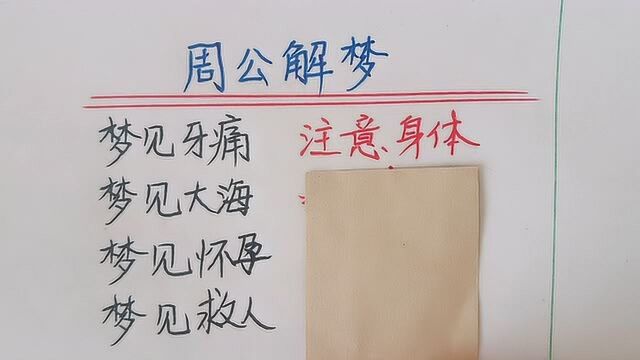 周公解梦
梦见牙痛 注意身体
梦见大海
梦见怀孕
梦见救人